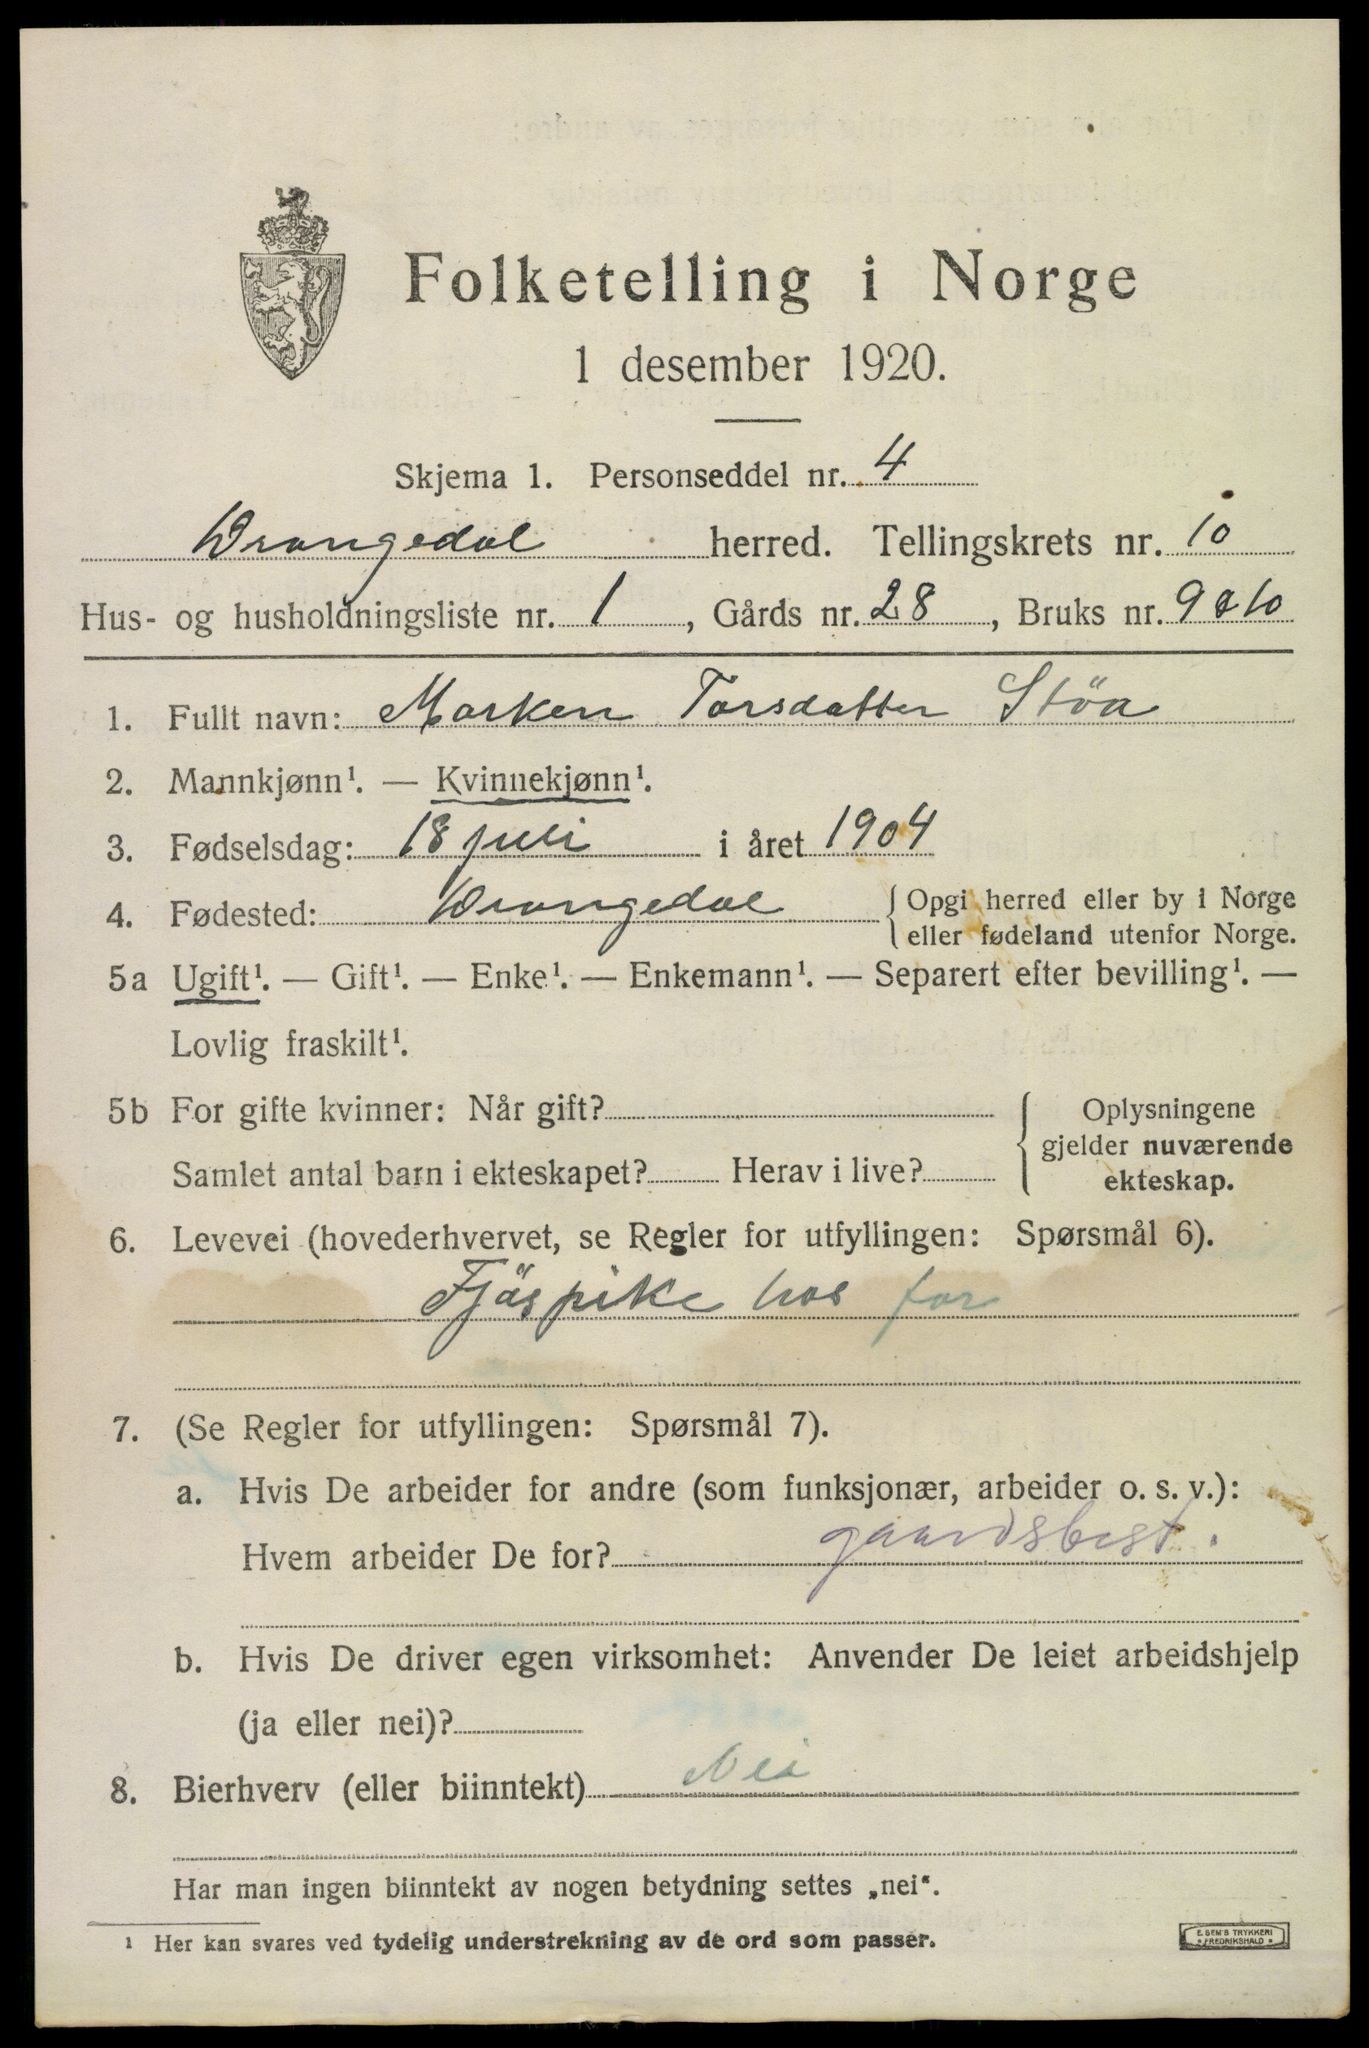 Folketelling i Norge
1 desember 1920.
Skjema 1. Personseddel nr. 4
Drangedal herred. Tellingskrets nr. 10
Hus- og husholdningsliste nr. 1, Gårds nr. 28, Bruks nr. 9 & 10
1. Fullt navn: Marken Torsdatter Stöa
2. Mannkjønn¹. — Kvinnekjønn¹.
3. Fødselsdag: 18 juli i året 1904
4. Fødested: Drangedal { Opgi herred eller by i Norge
eller fødeland utenfor Norge.
5a Ugift¹. — Gift¹. — Enke¹. — Enkemann¹. — Separert efter bevilling¹. —
Lovlig fraskilt¹.
5b For gifte kvinner: Når gift? { Oplysningene
gjelder nuværende
Samlet antal barn i ekteskapet? Herav i live? ekteskap.
6. Levevei (hovederhvervet, se Regler for utfyllingen: Spørsmål 6).
Fjöspike hos far
7. (Se Regler for utfyllingen: Spørsmål 7).
a. Hvis De arbeider for andre (som funksjonær, arbeider o. s. v.):
Hvem arbeider De for? gaardsbest.
b. Hvis De driver egen virksomhet: Anvender De leiet arbeidshjelp
(ja eller nei)?
8. Bierhverv (eller biinntekt) Nei
Har man ingen biinntekt av nogen betydning settes „nei“.
¹ Her kan svares ved tydelig understrekning av de ord som passer.
E. SEM'S TRYKKERI
FREDRIKSHALD